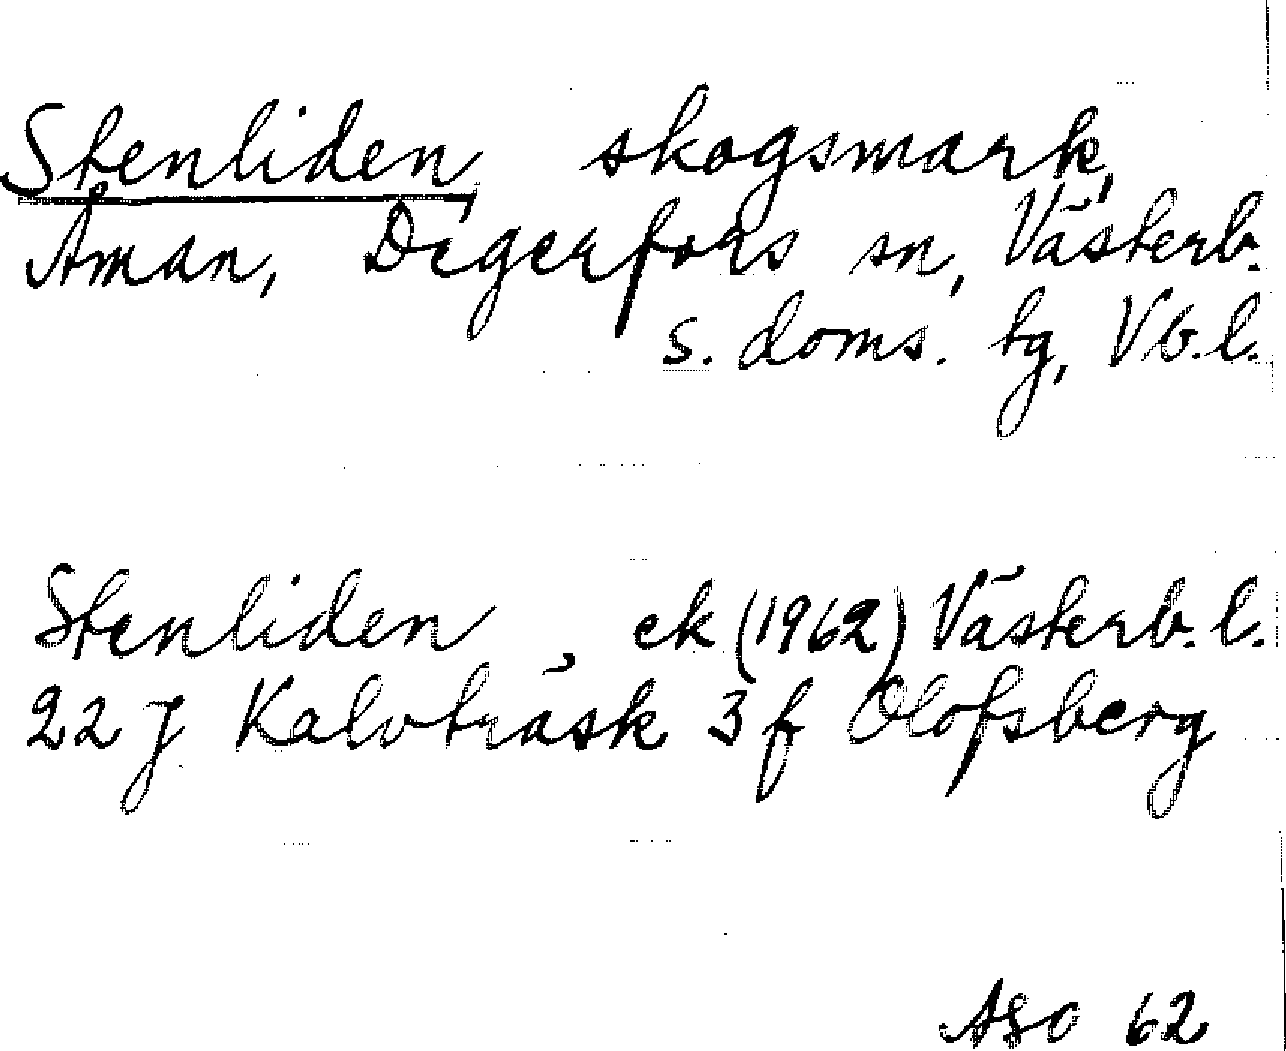 Stenliden, skogsmark,
Åman, Degerfors sn, Västerb.
s. doms. tg, Vb.l.
Stenliden, ek (1962) Västerb. l.
22 J Kalvträsk 3 f Olofsberg
ASO 62